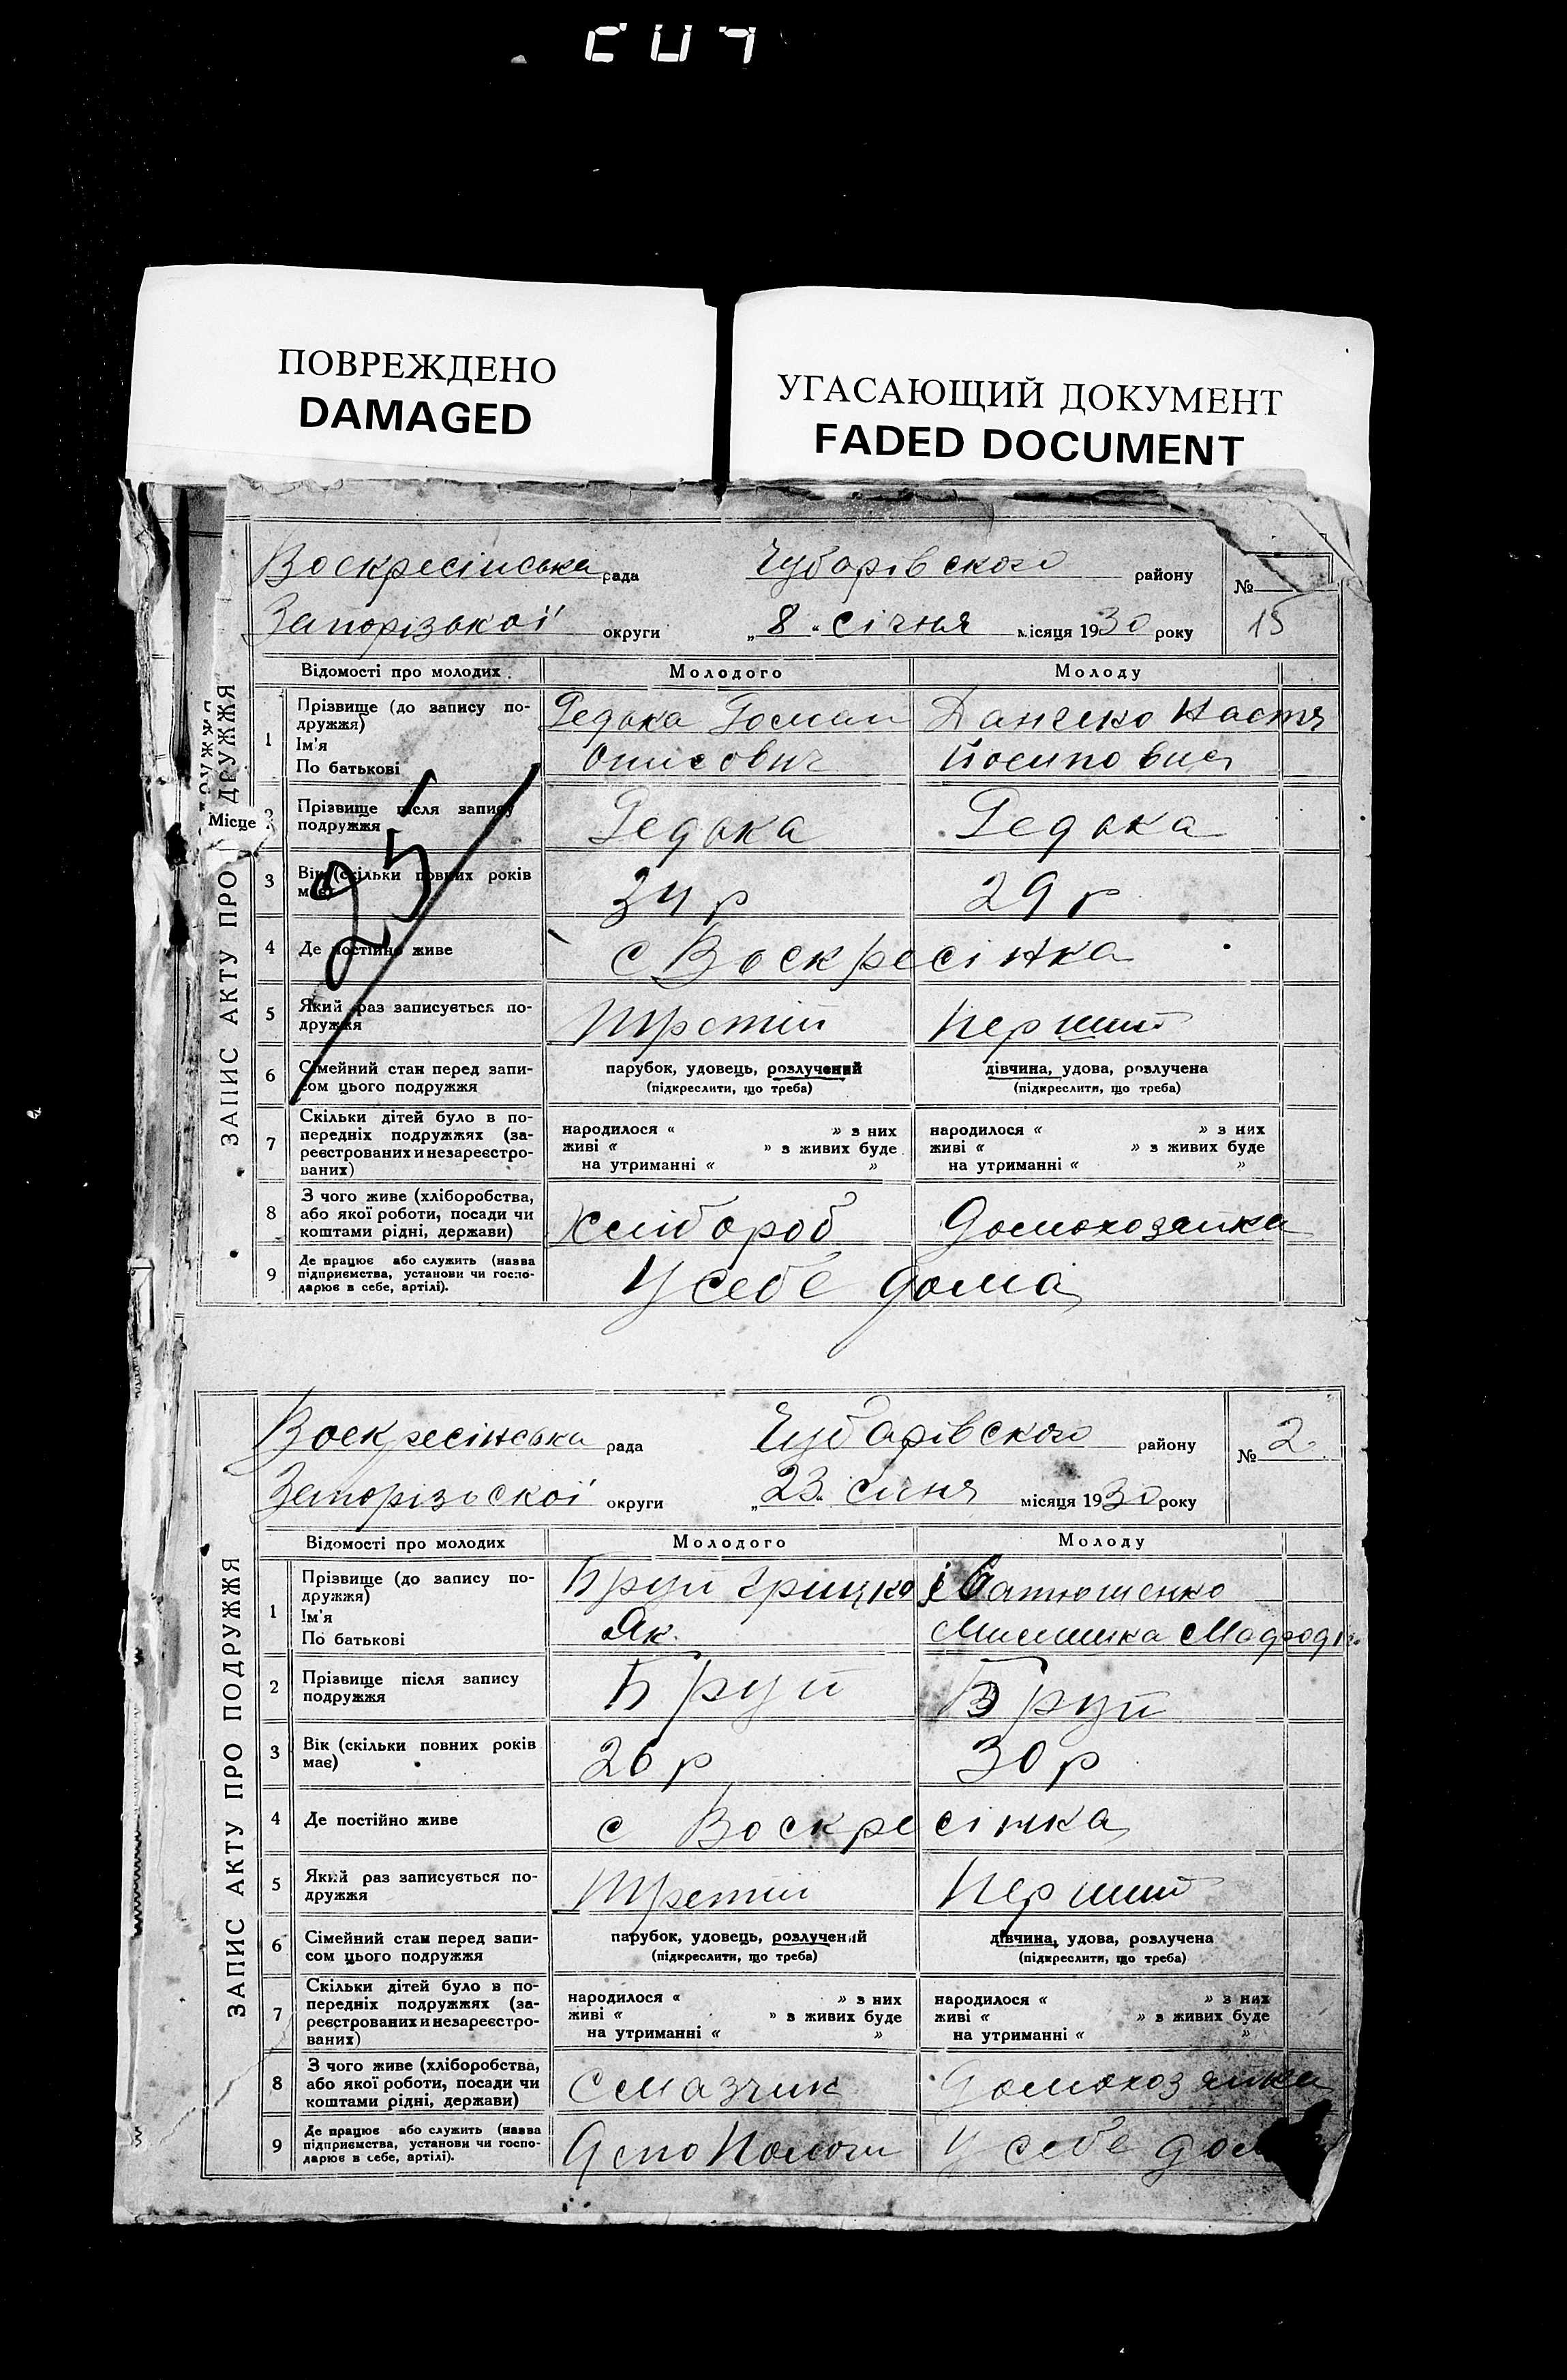 ПОВРЕЖДЕНО
DAMAGED
УГАСАЮЩИЙ ДОКУМЕНТ
FADED DOCUMENT
ЗАПИС АКТУ ПРО ДРУЖЖЯ
Місце
Воскресінська рада Чубарівского району №
Запорізької округи „8“ січня місяця 1930 року 15
Відомості про молодих Молодого Молоду
1 Прізвище (до запису по-
дружжя)
Ім'я
По батькові
Редька
Настя
Йосиповна
2 Прізвище після запису
подружжя
Редька Редька
3 Вік (скільки повних років
має)
34 р 29 р
95
4 Де постійно живе с Воскресінка
5 Який раз записується по-
дружжя
Третій Перший
6 Сімейний стан перед запи-
сом цього подружжя
парубок, удовець, розлучений
(підкреслити, що треба)
дівчина, удова, розлучена
(підкреслити, що треба)
7 Скільки дітей було в по-
передніх подружжях (за-
реєстрованих и незареєстро-
ваних)
народилося « » з них
живі « » з живих буде
на утриманні « »
народилося « » з них
живі « » з живих буде
на утриманні « »
8 З чого живе (хліборобства,
або якої роботи, посади чи
коштами рідні, держави)
хлібороб домохозяйка
9 Де працює або служить (назва
підприємства, установи чи госпо-
дарює в себе, артілі).
У себе дома
ЗАПИС АКТУ ПРО ПОДРУЖЖЯ
Воскресінська рада Чубарівского району № 2
Запорізьскої округи „23“ січня місяця 1930 року
Відомості про молодих Молодого Молоду
1 Прізвище (до запису по-
дружжя)
Ім'я
По батькові
Бруй Грицко
Як.
2 Прізвище після запису
подружжя
Бруй Бруй
3 Вік (скільки повних років
має)
26 р 30 р
4 Де постійно живе с Воскресінка
5 Який раз записується по-
дружжя
Третій Перший
6 Сімейний стан перед запи-
сом цього подружжя
парубок, удовець, розлучений
(підкреслити, що треба)
дівчина, удова, розлучена
(підкреслити, що треба)
7 Скільки дітей було в по-
передніх подружжях (за-
реєстрованих и незареєстро-
ваних)
народилося « » з них
живі « » з живих буде
на утриманні « »
народилося « » з них
живі « » з живих буде
на утриманні « »
8 З чого живе (хліборобства,
або якої роботи, посади чи
коштами рідні, держави)
Смазчик домохозяйка
9 Де працює або служить (назва
підприємства, установи чи госпо-
дарює в себе, артілі).
Депо Пологи У себе